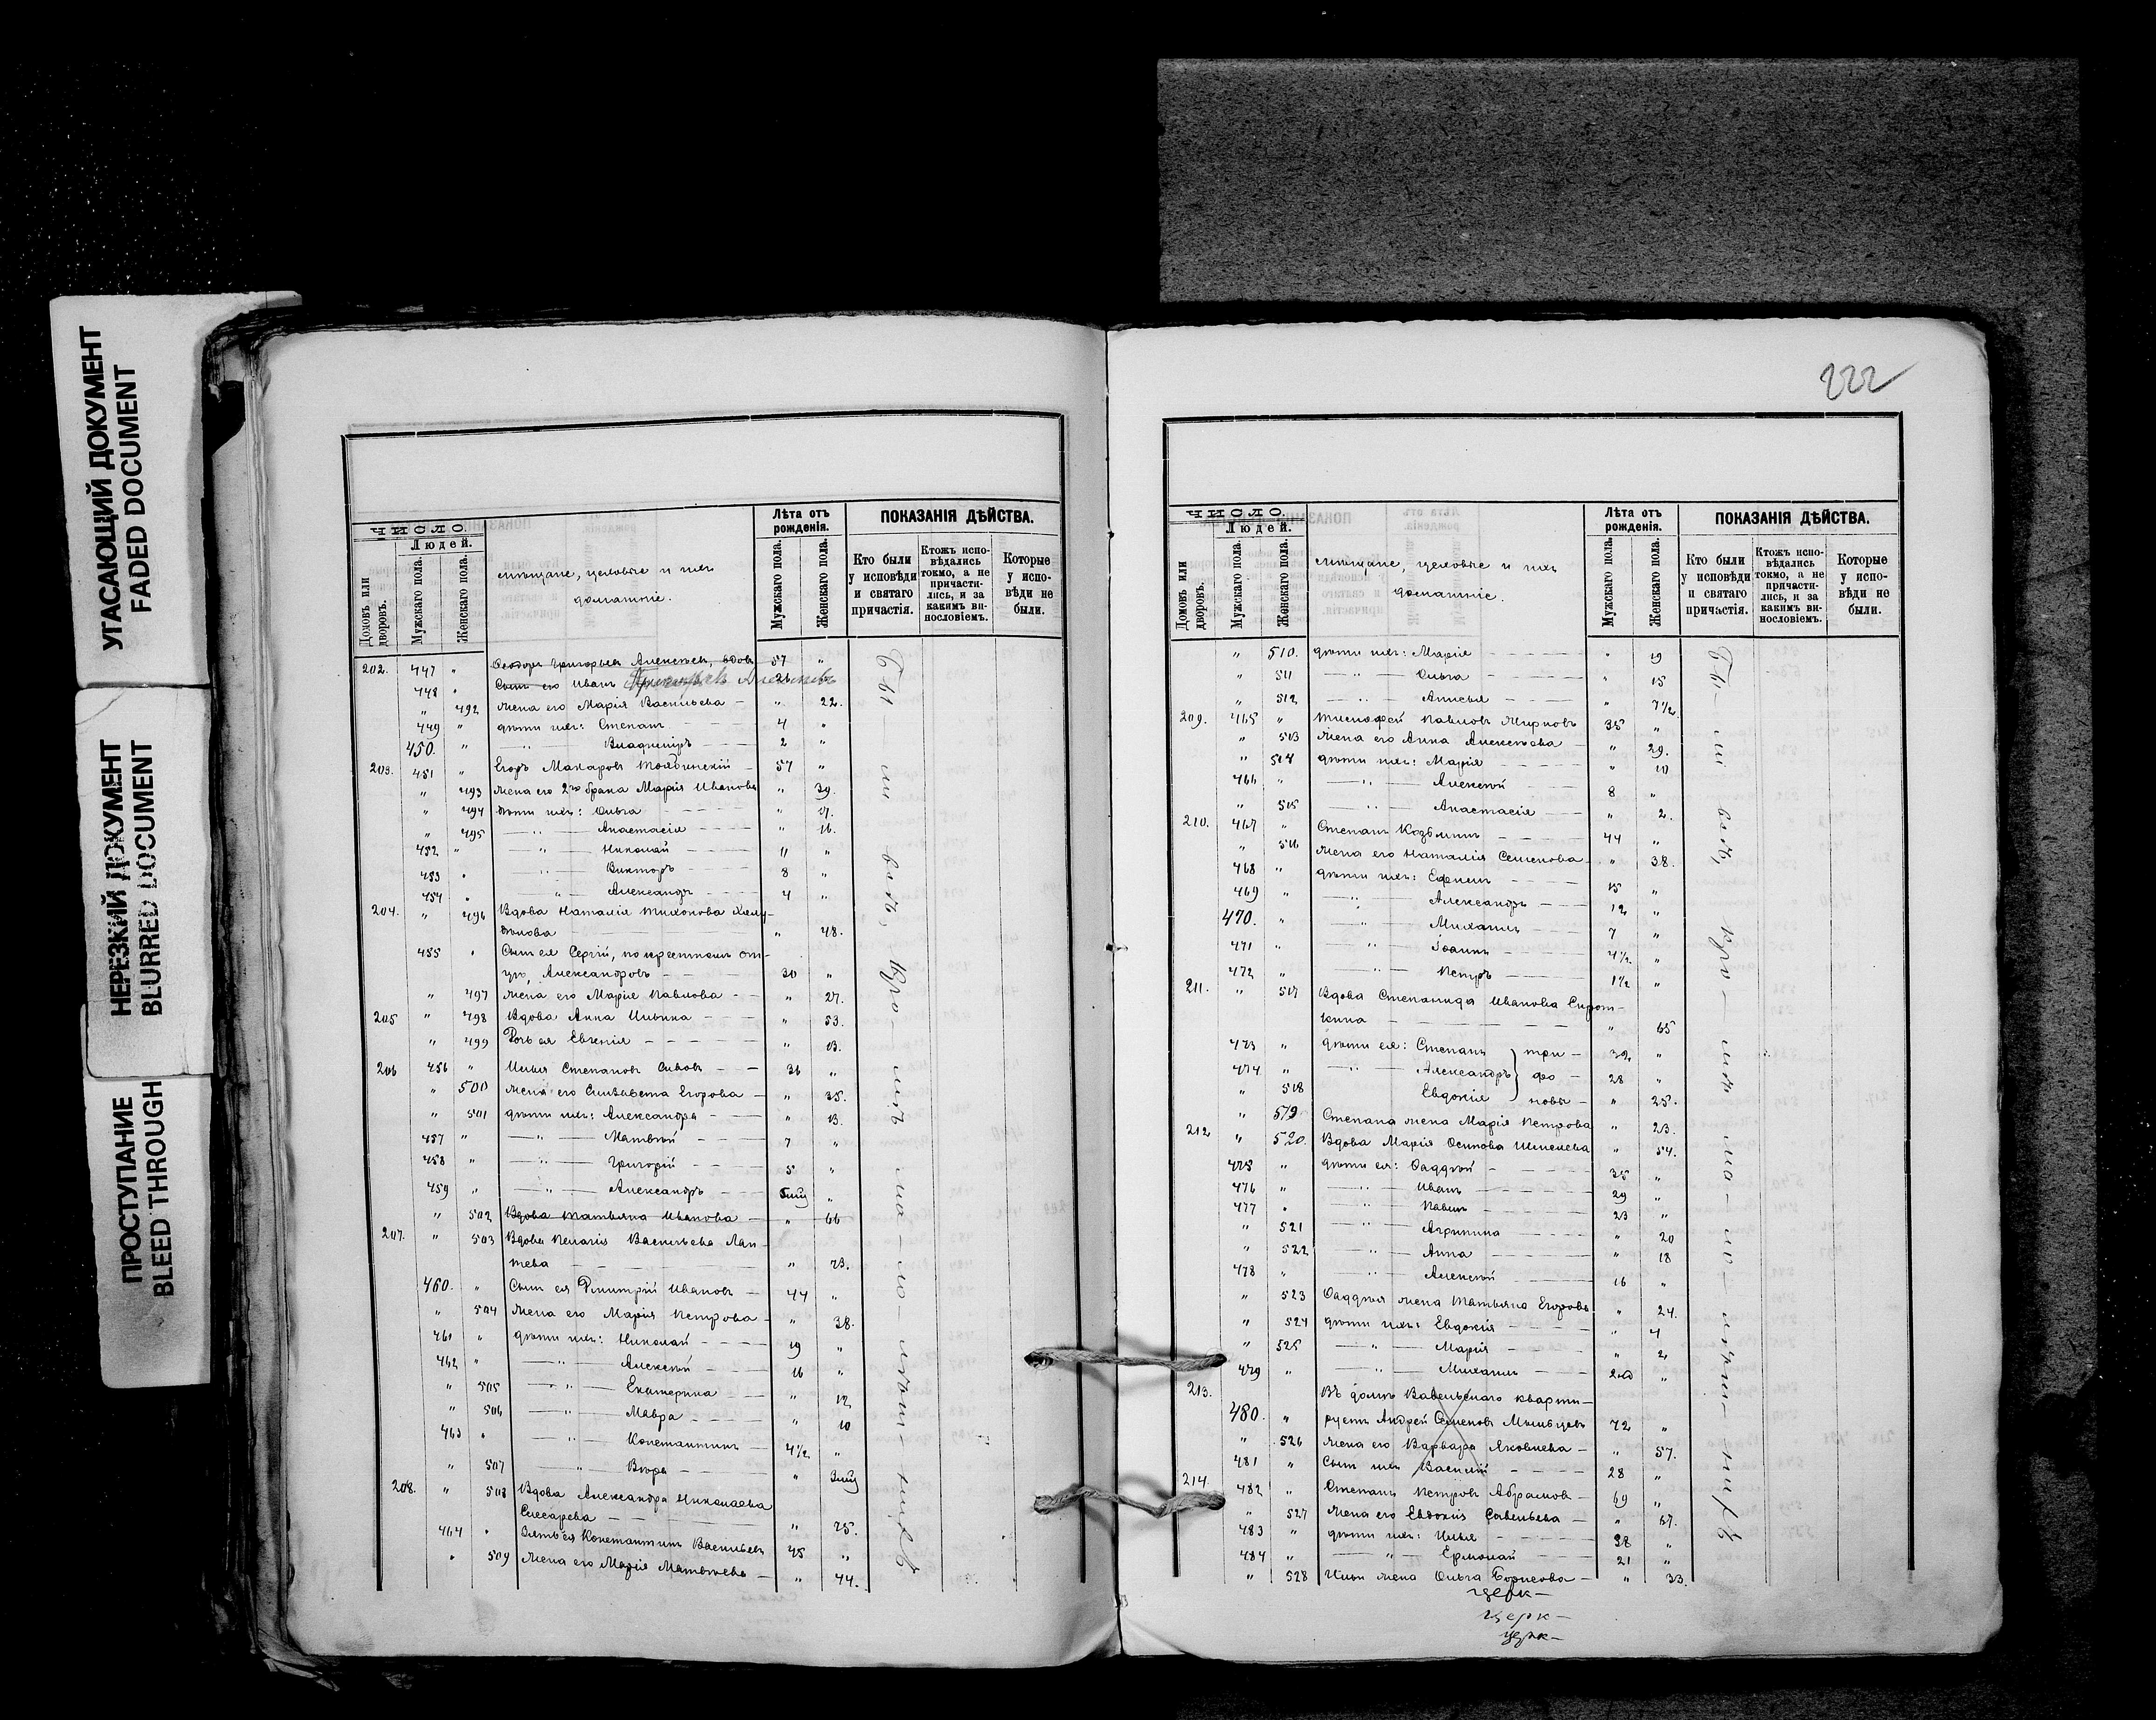 УГАСАЮЩИЙ ДОКУМЕНТ
FADED DOCUMENT
НЕРЕЗКИЙ ДОКУМЕНТ
BLURRED DOCUMENT
ПРОСТУПАНИЕ
BLEED THROUGH
ЧИСЛО.
Людей.
Домовъ или дворовъ.
Мужскаго пола.
Женскаго пола.
мѣщане, цеховые и ихъ
домашніе.
Лѣта отъ рожденія.
Мужскаго пола.
Женскаго пола.
ПОКАЗАНІЯ ДѢЙСТВА.
Кто были у исповѣди и святаго причастія.
Ктожъ исповѣдались токмо, а не причастились, и за какимъ винословіемъ.
Которые у исповѣди не были.
202. 447 " Ѳеодоръ Григорьевъ Алексѣевъ, вдовъ 57 "
448 " Сынъ его Иванъ Алексѣевъ 26
" 492 жена его Марія Васильева — " 22.
449 " дѣти ихъ: Степанъ 4 "
450. " — " — Владиміръ 2 "
203. 451 " Егоръ Макаровъ 57 "
" 493 жена его 2го брака Марія Иванова " 39.
" 494 дѣти ихъ: Ольга " 17.
" 495 — " — Анастасія " 16.
452 " — " — Николай 11 "
453 " — " — Викторъ 8 "
454 " — " — Александръ 4 "
204. " 496 Вдова Наталія Тихонова
" 48.
455 " Сынъ ея Сергій, по крестномъ от-
цу, Александровъ 30 "
" 497 жена его Марія Павлова — " 27.
205 " 498 Вдова Анна Ильина " 53.
" 499 Дочь ея Евгенія " 13.
206 456 " Илья Степановъ Сивовъ — 36 "
" 500 жена его Елисавета Егорова — " 35.
" 501 дѣти ихъ: Александра " 13.
457 " — " — Матвѣй 7 "
458 " — " — Григорій 5 "
459 " — " — Александръ "
" 502 Вдова Татьяна Иванова — " 66
207. " 503 Вдова Пелагія Васильева Лап-
тева " 73.
460. " Сынъ ея Димитрій Ивановъ — 44 "
" 504 жена его Марія Петрова — " 38.
461 " дѣти ихъ: Николай 19 "
462 " — " — Алексѣй 16 "
" 505 — " — Екатерина " 12
" 506 — " — Мавра " 10
463 " — " — Константинъ 4½ "
" 507 — " — Вѣра "
208. " 508 Вдова Александра Николаева
Слесарева " 75.
464 " Зять ея Константинъ Васильевъ 45 "
" 509 жена его Марія Матвѣева — " 44.
Бы-ли всѣ, кро-мѣ ма-ло-лѣт-нихъ
222
ЧИСЛО.
Людей.
Домовъ или дворовъ.
Мужскаго пола.
Женскаго пола.
мѣщане, цеховые и ихъ
домашніе.
Лѣта отъ рожденія.
Мужскаго пола.
Женскаго пола.
ПОКАЗАНІЯ ДѢЙСТВА.
Кто были у исповѣди и святаго причастія.
Ктожъ исповѣдались токмо, а не причастились, и за какимъ винословіемъ.
Которые у исповѣди не были.
" 510. дѣти ихъ: Марія " 19
" 511 — " — Ольга " 15
" 512 — " — Анисья " 7½
209. 465 " Тимофей Павловъ Жирновъ 35 "
" 513 жена его Анна Алексѣева — " 29.
" 514 дѣти ихъ: Марія " 10
466 " — " — Алексѣй 8 "
" 515 — " — Анастасія " 2.
210. 467 " Степанъ Козьминъ 44 "
" 516 жена его Наталія Семенова — " 38.
468 " дѣти ихъ: Ефимъ 15 "
469 " — " — Александръ 12 "
470. " — " — Михаилъ 7 "
471 " — " — Іоаннъ 4½ "
472 " — " — Петръ 1½ "
211. " 517 Вдова Степанида Иванова Сирот-
кина " 65
473 " дѣти ея: Степанъ } три- 32 "
474 " — " — Александръ } фо- 28 "
" 518 Евдокія } новы- " 25.
" 519 Степана жена Марія Петрова " 23.
212 " 520. Вдова Марія Осипова Шмелева " 54.
475 " дѣти ея: Ѳаддѣй 35 "
476 " — " — Иванъ 29 "
477 " — " — Павелъ 23 "
" 521 — " — Агрипина " 20
" 522 — " — Анна " 18
478 " — " — Алексѣй 16 "
" 523 Ѳаддѣя жена Татьяна Егорова " 24.
" 524 дѣти ихъ: Евдокія " 4
" 525 — " — Марія " 2
479 " — " — Михаилъ "
213. Въ домѣ кварти-
480. " руетъ Андрей Семеновъ Мыльцевъ 72 "
" 526 жена его Варвара Яковлева — " 57.
481 " Сынъ ихъ Василій 28 "
214. 482 " Степанъ Петровъ Абрамовъ — 69 "
" 527 жена его Евдокія Савельева — " 67.
483 " дѣти ихъ: Илья 38 "
484 " — " — Ермолай 21 "
" 528 Ильи жена Ольга Борисова — " 33.
Бы-ли всѣ, кро-мѣ ма-ло-лѣт-нихъ
церк-
церк-
церк-